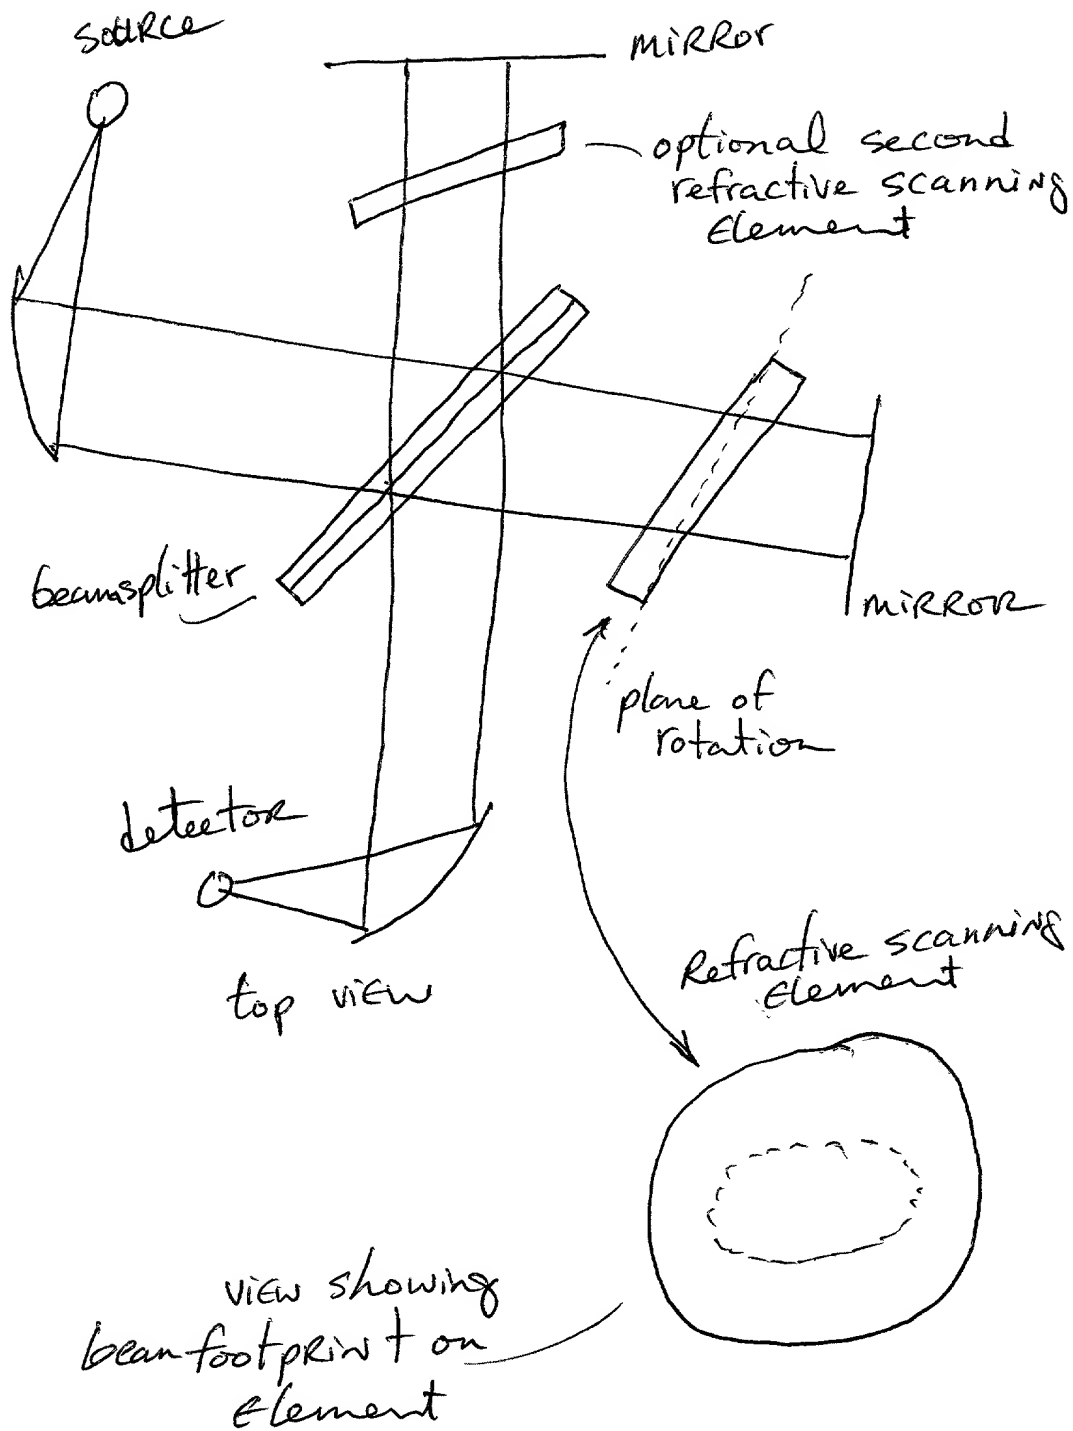 source
mirror
optional second
refractive scanning
element
beamsplitter
mirror
plane of
rotation
detector
top view
Refractive scanning
element
view showing
beam footprint on
element